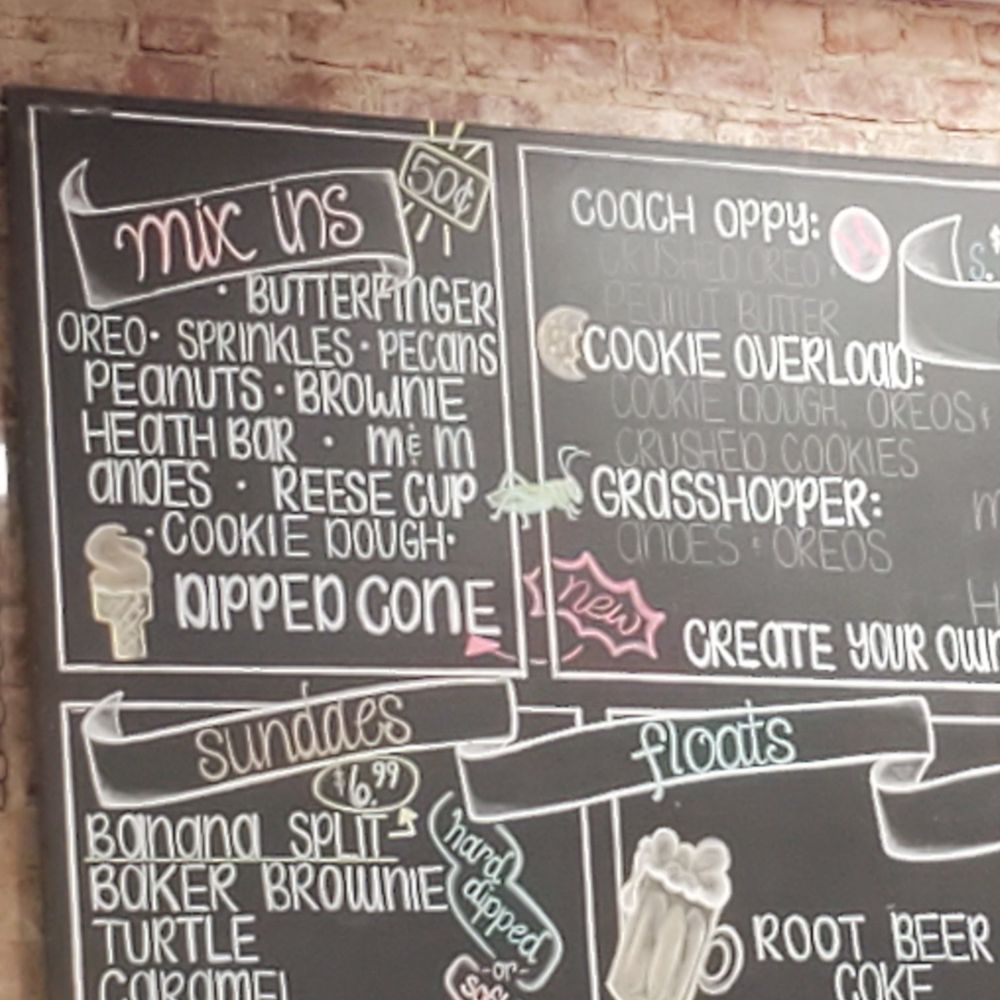 mix ins
50¢
· BUTTERFINGER
OREO · SPRINKLES · PECANS
PEANUTS · BROWNIE
HEATH BAR · m & m
ANDES · REESE CUP
· COOKIE DOUGH ·
DIPPED CONE
COACH OPPY:
CRUSHED OREO ·
PEANUT BUTTER
COOKIE OVERLOAD:
COOKIE DOUGH, OREOS &
CRUSHED COOKIES
GRASSHOPPER:
ANDES & OREOS
new
CREATE YOUR OWN
sundaes
$6.99
BANANA SPLIT
BAKER BROWNIE
TURTLE
CARAMEL
hard
dipped
-or-
floats
ROOT BEER
COKE